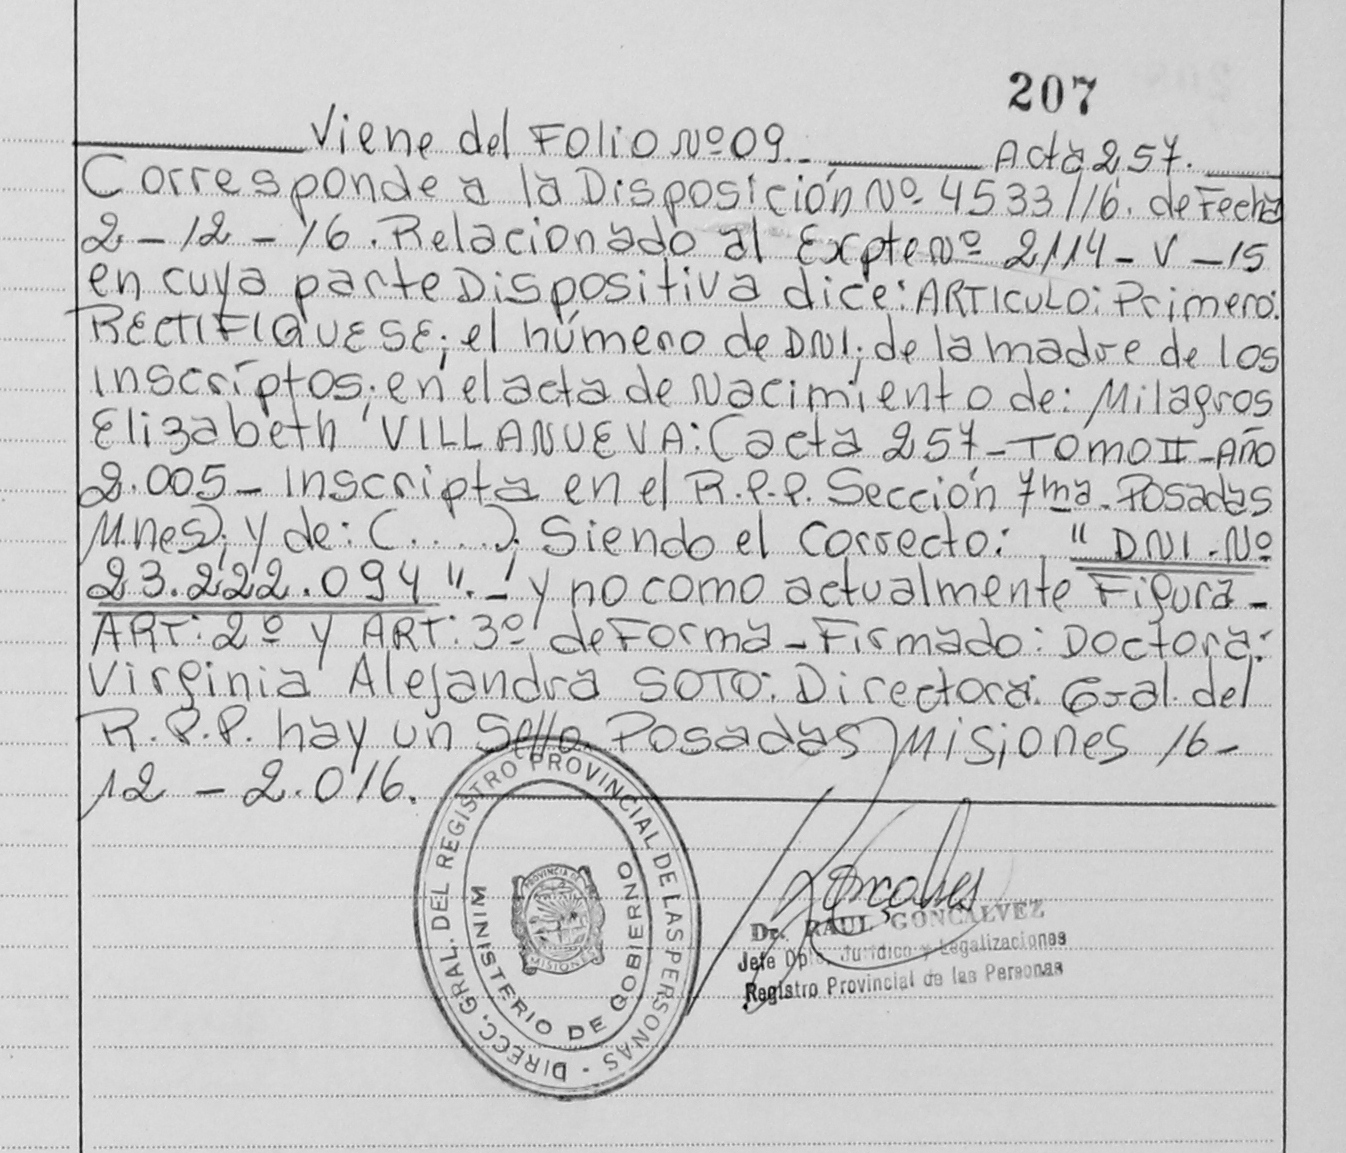 207
Viene del Folio Nº 09.- Acta 257.
Corresponde a la Disposición Nº 4533/16. de Fecha
2-12-16. Relacionado al Expte Nº 2114-V-15
en cuya parte Dispositiva dice: ARTICULO: Primero:
RECTIFIQUESE; el número de DNI; de la madre de los
inscriptos; en el acta de Nacimiento de: Milagros
Elizabeth VILLANUEVA: (acta 257-TOMO II-Año
2.005- inscripta en el R.P.P. Sección 7ma. Posadas
Mnes); y de: (....). Siendo el Correcto: "DNI.Nº
23.222.094".- y no como actualmente Figura-
ART: 2º y ART: 3º de Forma-Firmado: Doctora:
Virginia Alejandra SOTO: Directora: Gral. del
R.P.P. hay un Sello. Posadas Misiones 16-
12-2.016.
DIRECC. GRAL. DEL REGISTRO PROVINCIAL DE LAS PERSONAS
MINISTERIO DE GOBIERNO
PROVINCIA DE
MISIONES
Dr. RAUL GONCALVEZ
Jefe Dpto. Jurídico y Legalizaciones
Registro Provincial de las Personas